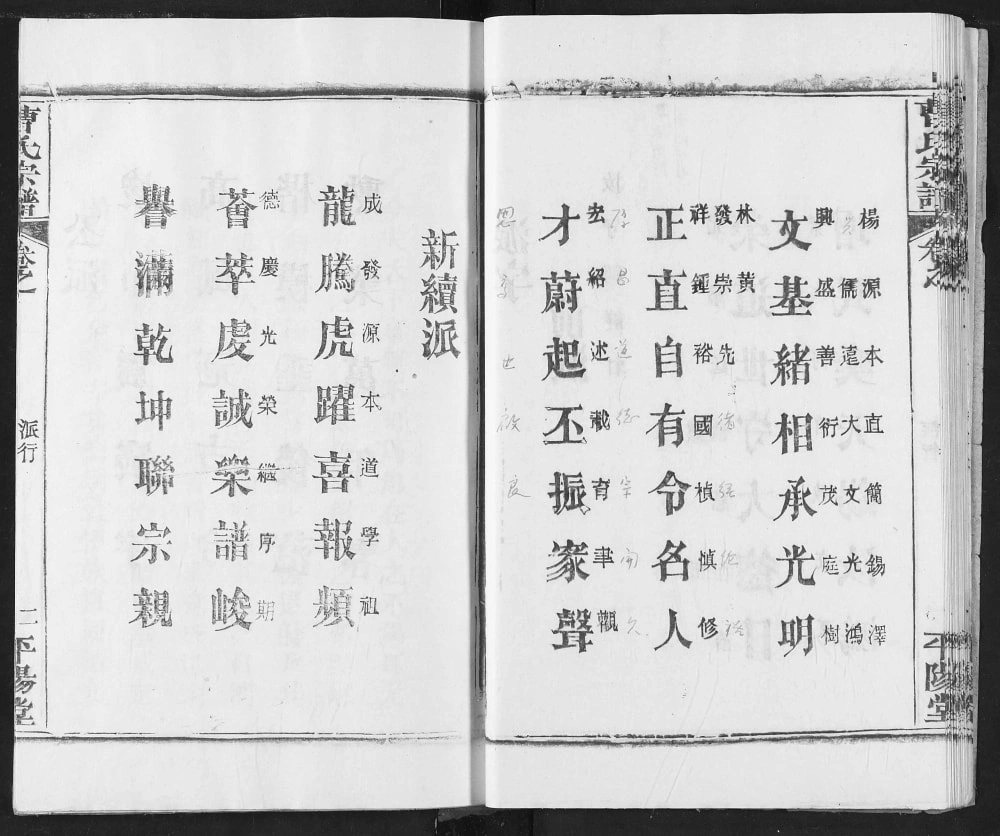 曹氏宗譜 卷之 平陽堂
楊源本直簡錫澤
儒遠大文光鴻
興盛善衍茂庭樹
文基緒相承光明
林黃先
發崇
祥鍾裕國楨慎修
正直自有令名人
昌道德
紹述戴育聿觀
才蔚起丕振家聲
世
新續派
成發源本道學祖
龍騰虎躍喜報頻
德慶光榮繼序期
薈萃虔誠樂譜峻
譽滿乾坤聯宗親
曹氏宗譜 卷之一 派行 二 平陽堂